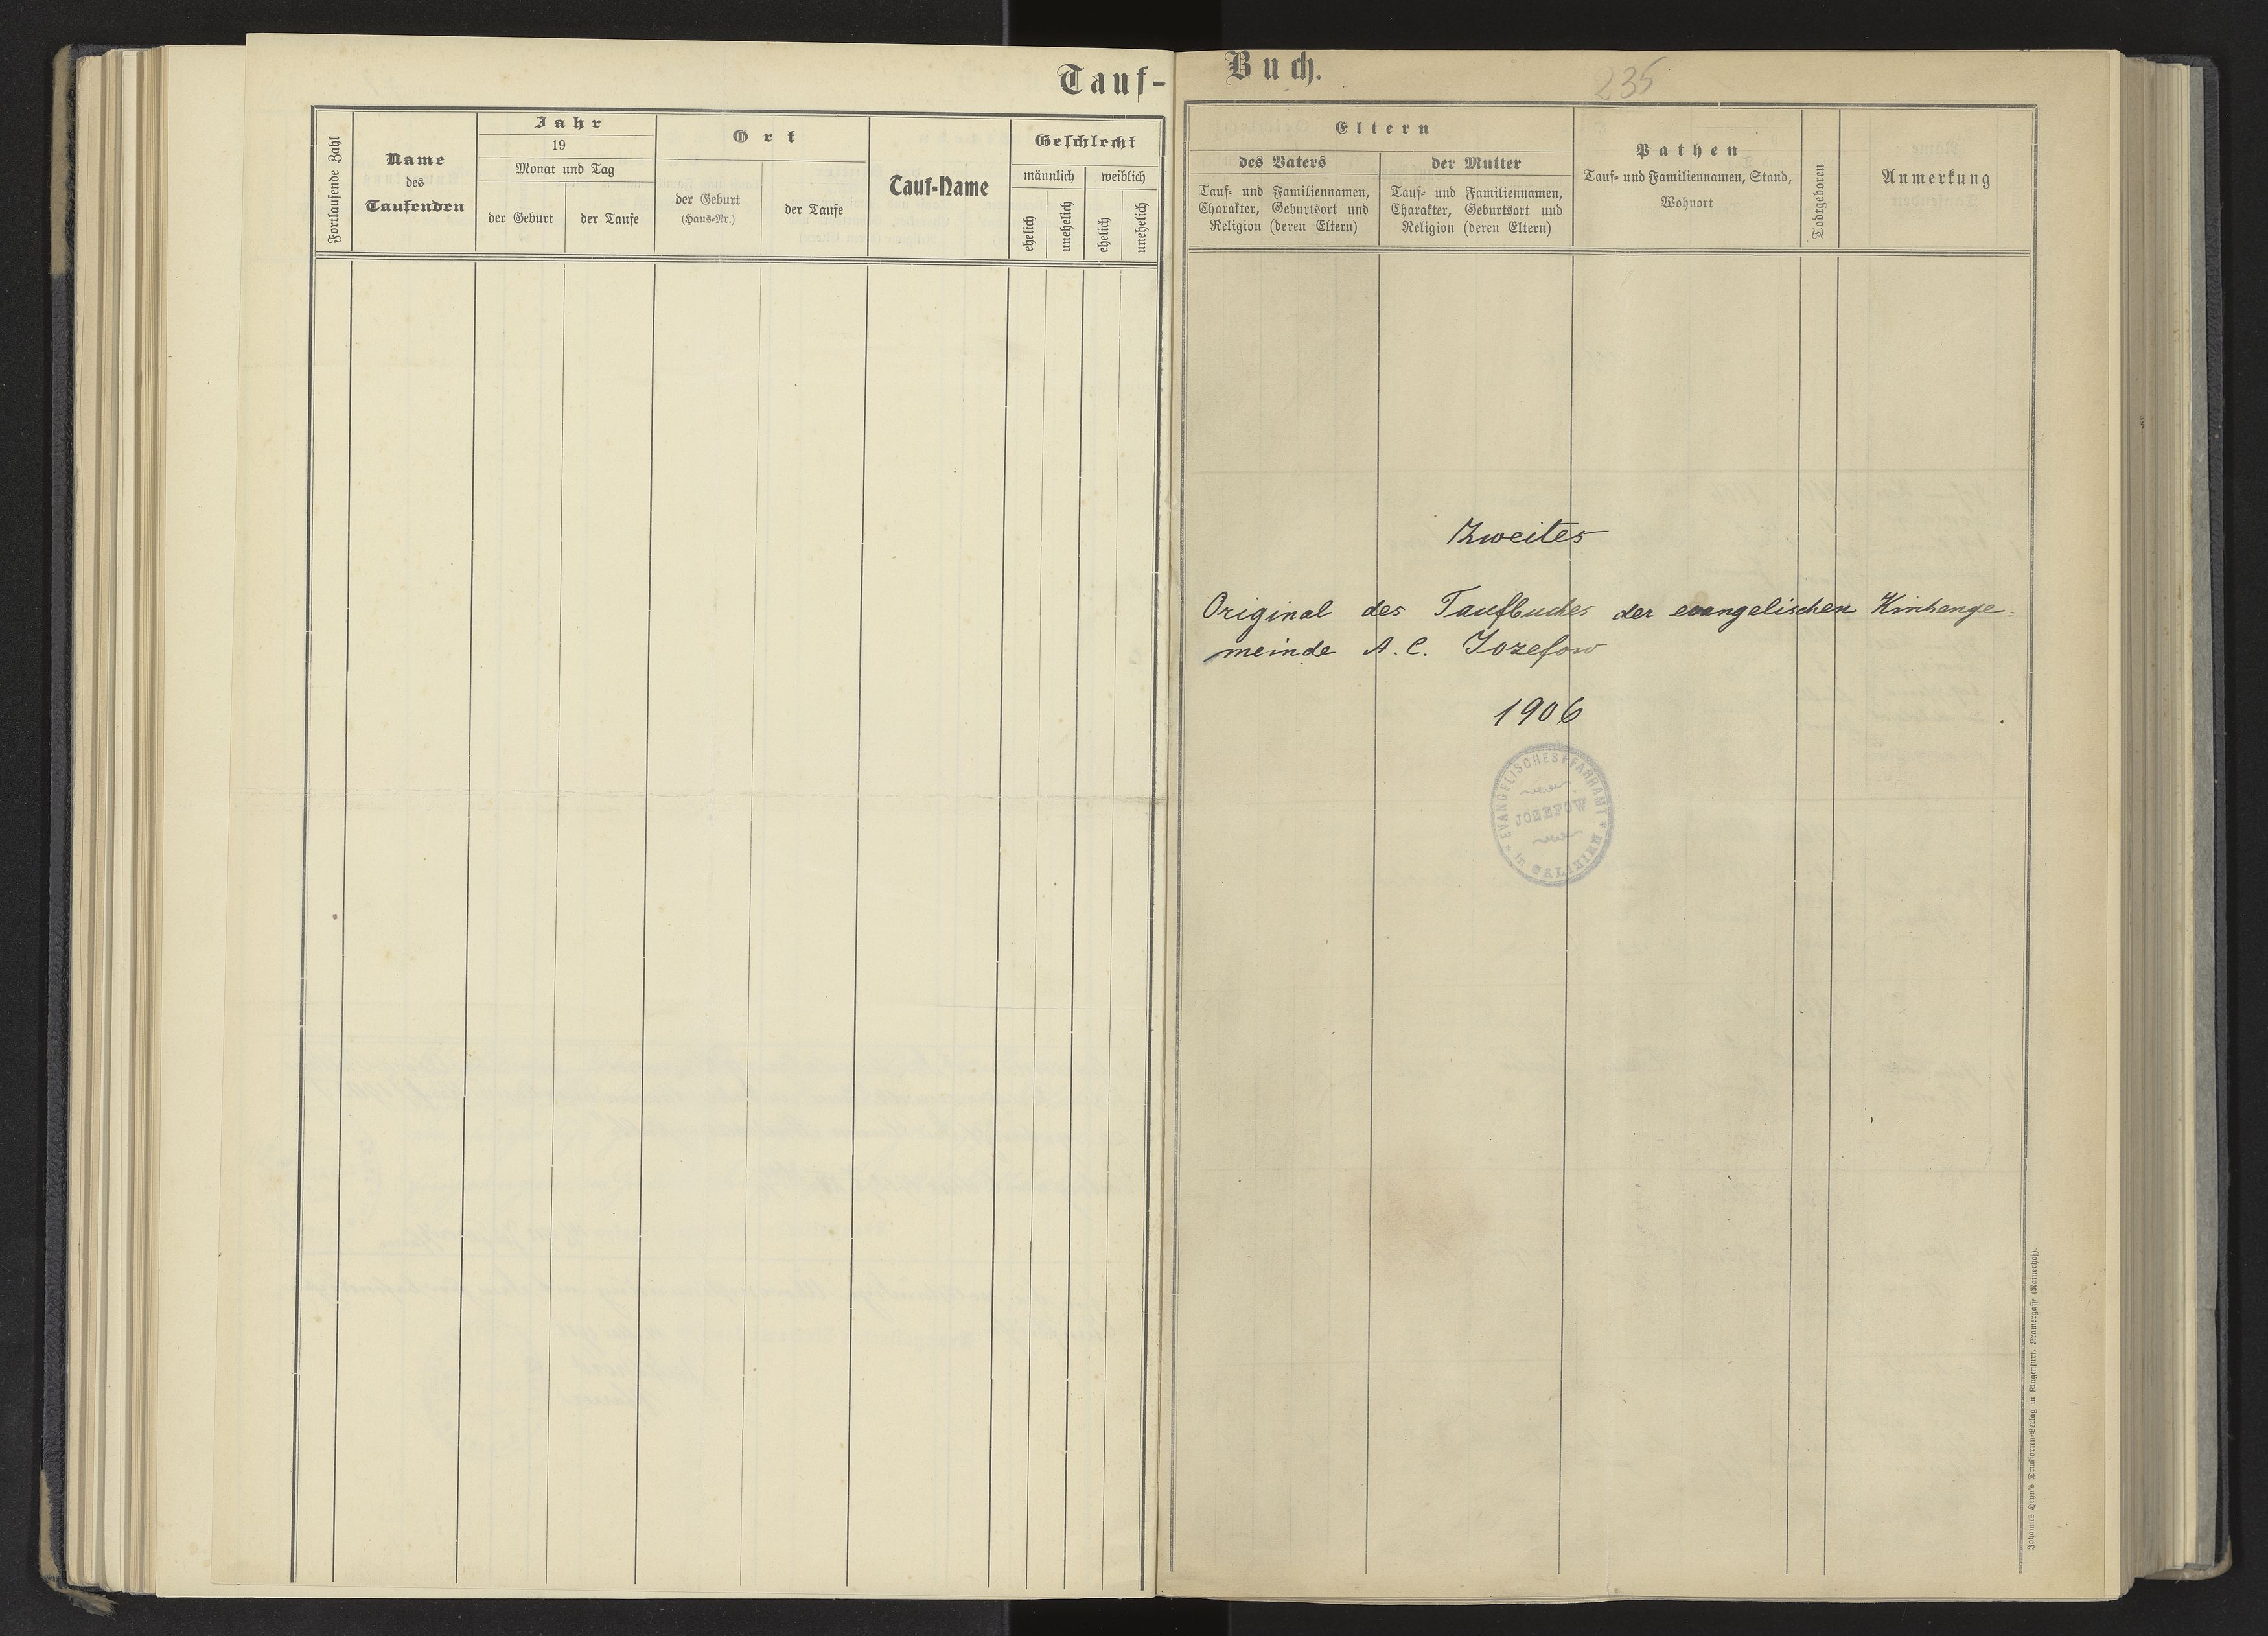 Tauf-
Buch.
235
Fortlaufende Zahl
Name
des
Taufenden
Jahr
19
Monat und Tag
der Geburt
der Taufe
Ort
der Geburt
(Haus-Nr.)
der Taufe
Tauf-Name
Geschlecht
männlich
weiblich
ehelich
unehelich
ehelich
unehelich
Eltern
des Vaters
Tauf- und Familiennamen,
Charakter, Geburtsort und
Religion (deren Eltern)
der Mutter
Tauf- und Familiennamen,
Charakter, Geburtsort und
Religion (deren Eltern)
Pathen
Tauf- und Familiennamen, Stand,
Wohnort
Todtgeboren
Anmerkung
Zweites
Original des Taufbuches der evangelischen Kirchenge=
meinde A. C. Jozefow
1906
EVANGELISCHES PFARRAMT
JOZEFOW
* in GALIZIEN *
Johannes Heyn's Drucksorten-Verlag in Klagenfurt, Kramergasse (Rainerhof).